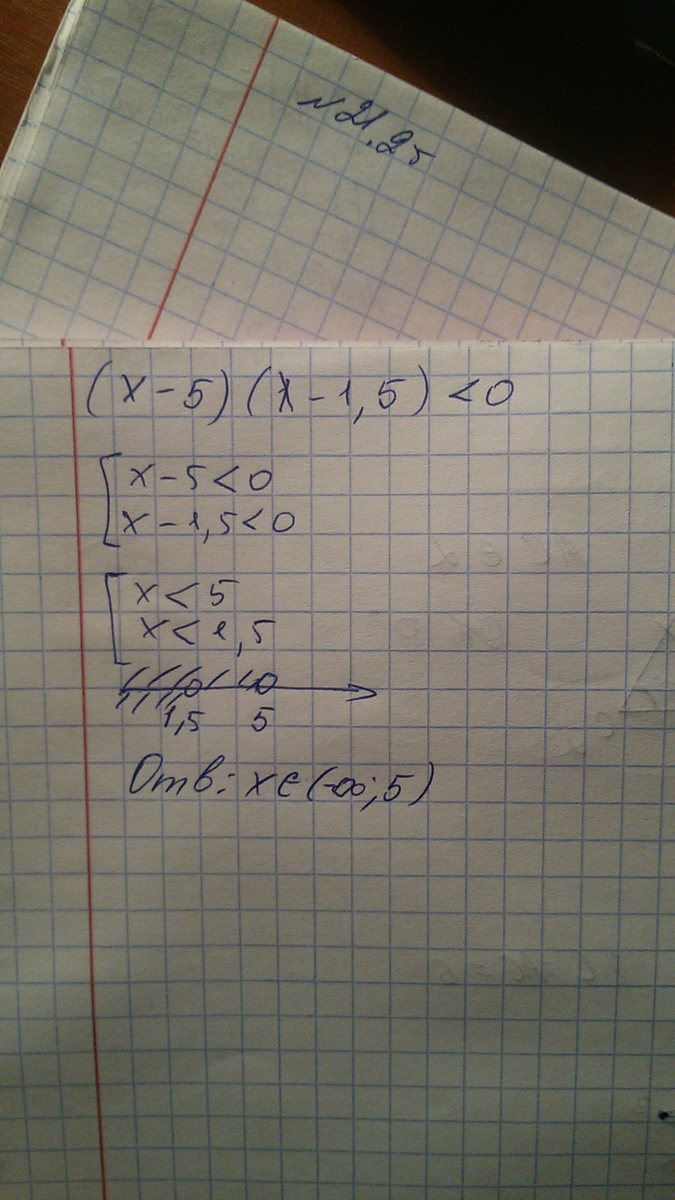 №21.25
(x-5)(x-1,5)<0
x-5<0
x-1,5<0
x<5
x<1,5
1,5 5
Отв: x∈(-∞;5)